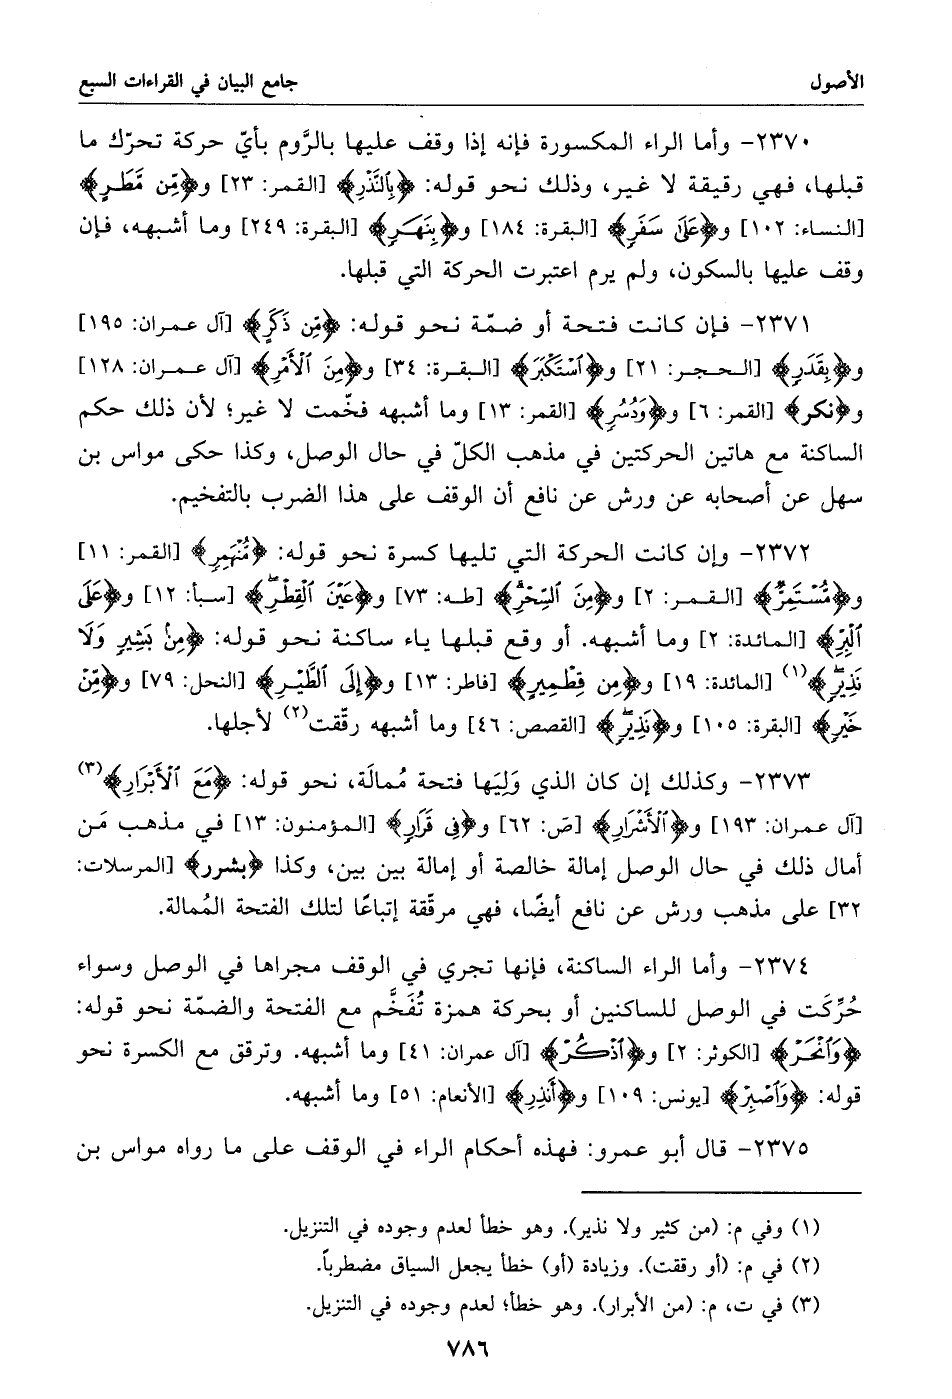 الأصول
جامع البيان في القراءات السبع
٢٣٧٠- وأما الراء المكسورة فإنه إذا وقف عليها بالرَّوم بأيّ حركة تحرّك ما
قبلها، فهي رقيقة لا غير، وذلك نحو قوله: ﴿بِالنُّذُرِ﴾ [القمر: ٢٣] و﴿مِّن مَّطَرٍ﴾
[النساء: ١٠٢] و﴿عَلَىٰ سَفَرٍ﴾ [البقرة: ١٨٤] و﴿بِنَهَرٍ﴾ [البقرة: ٢٤٩] وما أشبهه، فإن
وقف عليها بالسكون، ولم يرم اعتبرت الحركة التي قبلها.
٢٣٧١- فإن كانت فتحة أو ضمّة نحو قوله: ﴿مِّن ذَكَرٍ﴾ [آل عمران: ١٩٥]
و﴿بِقَدَرٍ﴾ [الحجر: ٢١] و﴿ٱسْتَكْبَرَ﴾ [البقرة: ٣٤] و﴿مِنَ ٱلْأَمْرِ﴾ [آل عمران: ١٢٨]
و﴿نكر﴾ [القمر: ٦] و﴿وَدُسُرٍ﴾ [القمر: ١٣] وما أشبهه فخّمت لا غير؛ لأن ذلك حكم
الساكنة مع هاتين الحركتين في مذهب الكلّ في حال الوصل، وكذا حكى مواس بن
سهل عن أصحابه عن ورش عن نافع أن الوقف على هذا الضرب بالتفخيم.
٢٣٧٢- وإن كانت الحركة التي تليها كسرة نحو قوله: ﴿مُّنْهَمِرٍ﴾ [القمر: ١١]
و﴿مُّسْتَمِرٌّ﴾ [القمر: ٢] و﴿مِنَ ٱلسِّحْرِۗ﴾ [طه: ٧٣] و﴿عَيْنَ ٱلْقِطْرِۖ﴾ [سبأ: ١٢] و﴿عَلَى
ٱلْبِرِّ﴾ [المائدة: ٢] وما أشبهه. أو وقع قبلها ياء ساكنة نحو قوله: ﴿مِنۢ بَشِيرٍ وَلَا
نَذِيرٍۖ﴾(١) [المائدة: ١٩] و﴿مِن قِطْمِيرٍ﴾ [فاطر: ١٣] و﴿إِلَى ٱلطَّيْرِ﴾ [النحل: ٧٩] و﴿مِّنْ
خَيْرٍ﴾ [البقرة: ١٠٥] و﴿نَذِيرٍۖ﴾ [القصص: ٤٦] وما أشبهه رقّقت(٢) لأجلها.
٢٣٧٣- وكذلك إن كان الذي وَلِيَها فتحة مُمالَة، نحو قوله: ﴿مَعَ ٱلْأَبْرَارِ﴾(٣)
[آل عمران: ١٩٣] و﴿ٱلْأَشْرَارِ﴾ [صَ: ٦٢] و﴿فِى قَرَارٍ﴾ [المؤمنون: ١٣] في مذهب مَن
أمال ذلك في حال الوصل إمالة خالصة أو إمالة بين بين، وكذا ﴿بشرر﴾ [المرسلات:
٣٢] على مذهب ورش عن نافع أيضًا، فهي مرقّقة إتباعًا لتلك الفتحة المُمالة.
٢٣٧٤- وأما الراء الساكنة، فإنها تجري في الوقف مجراها في الوصل وسواء
حُرِّكَت في الوصل للساكنين أو بحركة همزة تُفَخَّم مع الفتحة والضمّة نحو قوله:
﴿وَٱنْحَرْ﴾ [الكوثر: ٢] و﴿ٱذْكُرْ﴾ [آل عمران: ٤١] وما أشبهه. وترقق مع الكسرة نحو
قوله: ﴿وَٱصْبِرْ﴾ [يونس: ١٠٩] و﴿أَنذِرِ﴾ [الأنعام: ٥١] وما أشبهه.
٢٣٧٥- قال أبو عمرو: فهذه أحكام الراء في الوقف على ما رواه مواس بن
(١) وفي م: (من كثير ولا نذير). وهو خطأ لعدم وجوده في التنزيل.
(٢) في م: (أو رققت). وزيادة (أو) خطأ يجعل السياق مضطرباً.
(٣) في ت، م: (من الأبرار). وهو خطأ؛ لعدم وجوده في التنزيل.
٧٨٦